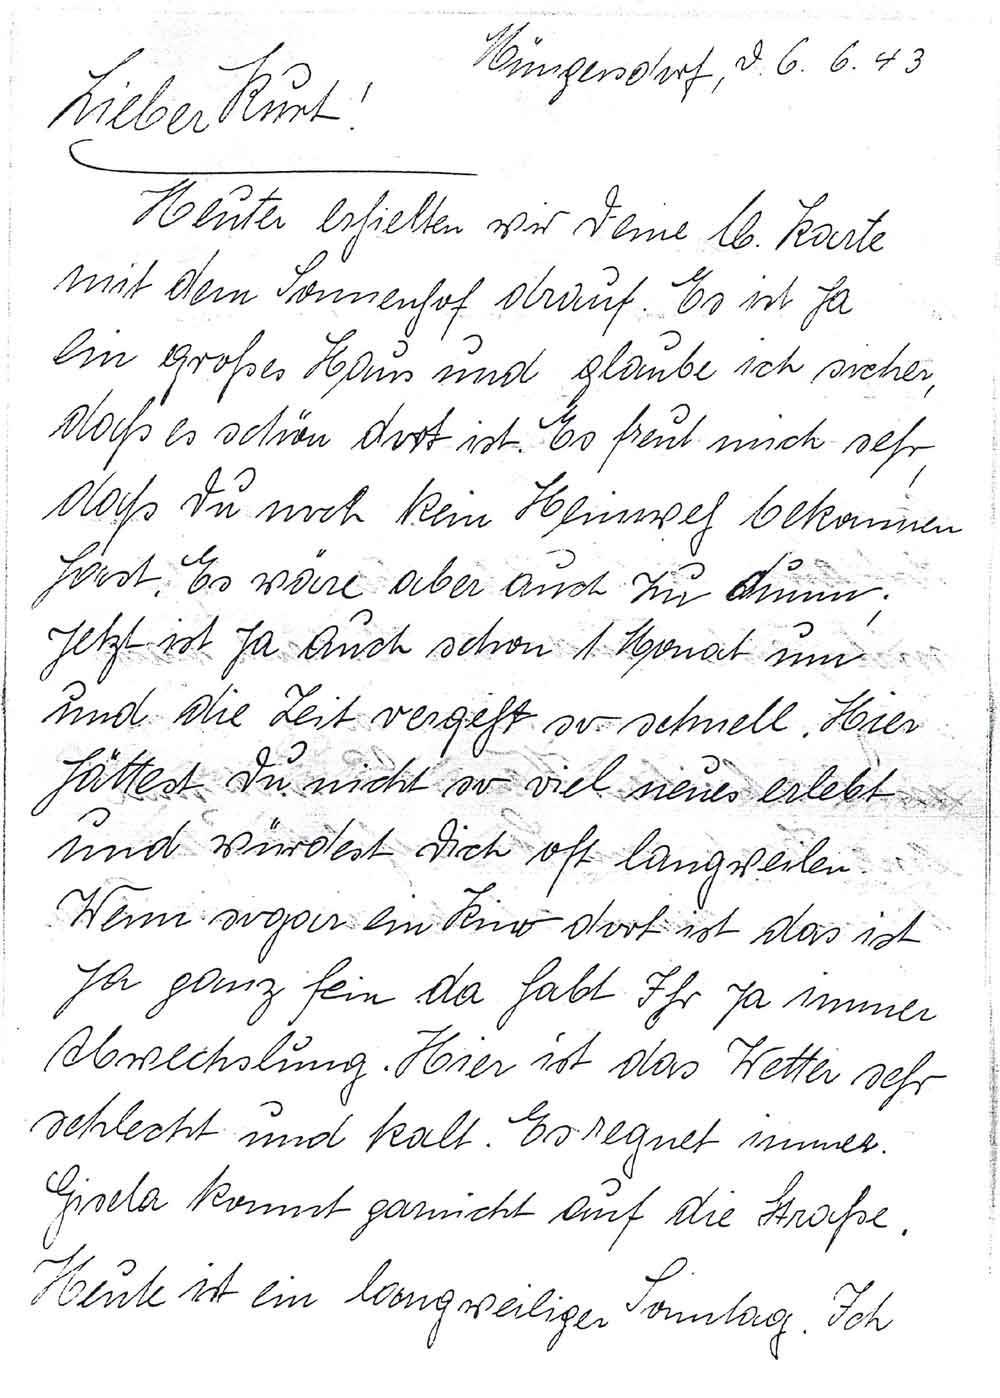 Müngersdorf, d. 6. 6. 43
Lieber Kurt!
Heute erhielten wir Deine lb. Karte
mit dem Sonnenhof drauf. Es ist ja
ein großes Haus und glaube ich sicher,
daß es schön dort ist. Es freut mich sehr,
daß Du noch kein Heimweh bekommen
hast. Es wäre aber auch zu dumm,
jetzt ist ja auch schon 1 Monat um
und die Zeit vergeht so schnell. Hier
hättest Du nicht so viel neues erlebt
und würdest Dich oft langweilen.
Wenn sogar ein Kino dort ist das ist
ja ganz fein da habt Ihr ja immer
Abwechslung. Hier ist das Wetter sehr
schlecht und kalt. Es regnet immer.
Gisela kommt garnicht auf die Straße.
Heute ist ein langweiliger Sonntag. Ich